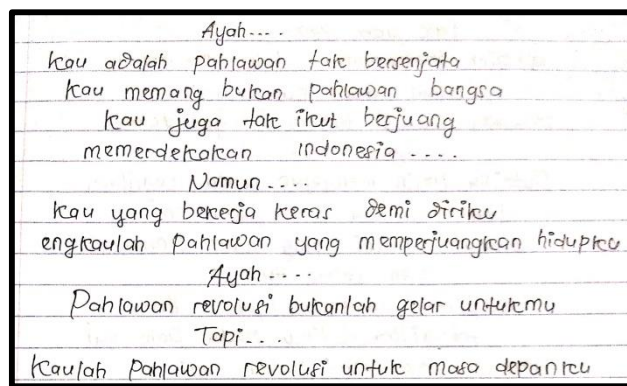 Ayah....
Kau adalah pahlawan tak bersenjata
Kau memang bukan pahlawan bangsa
Kau juga tak ikut berjuang
memerdekakan indonesia ....
Namun....
Kau yang bekerja keras demi diriku
engkaulah pahlawan yang memperjuangkan hidupku
Ayah....
Pahlawan revolusi bukanlah gelar untukmu
Tapi....
Kaulah pahlawan revolusi untuk masa depanku